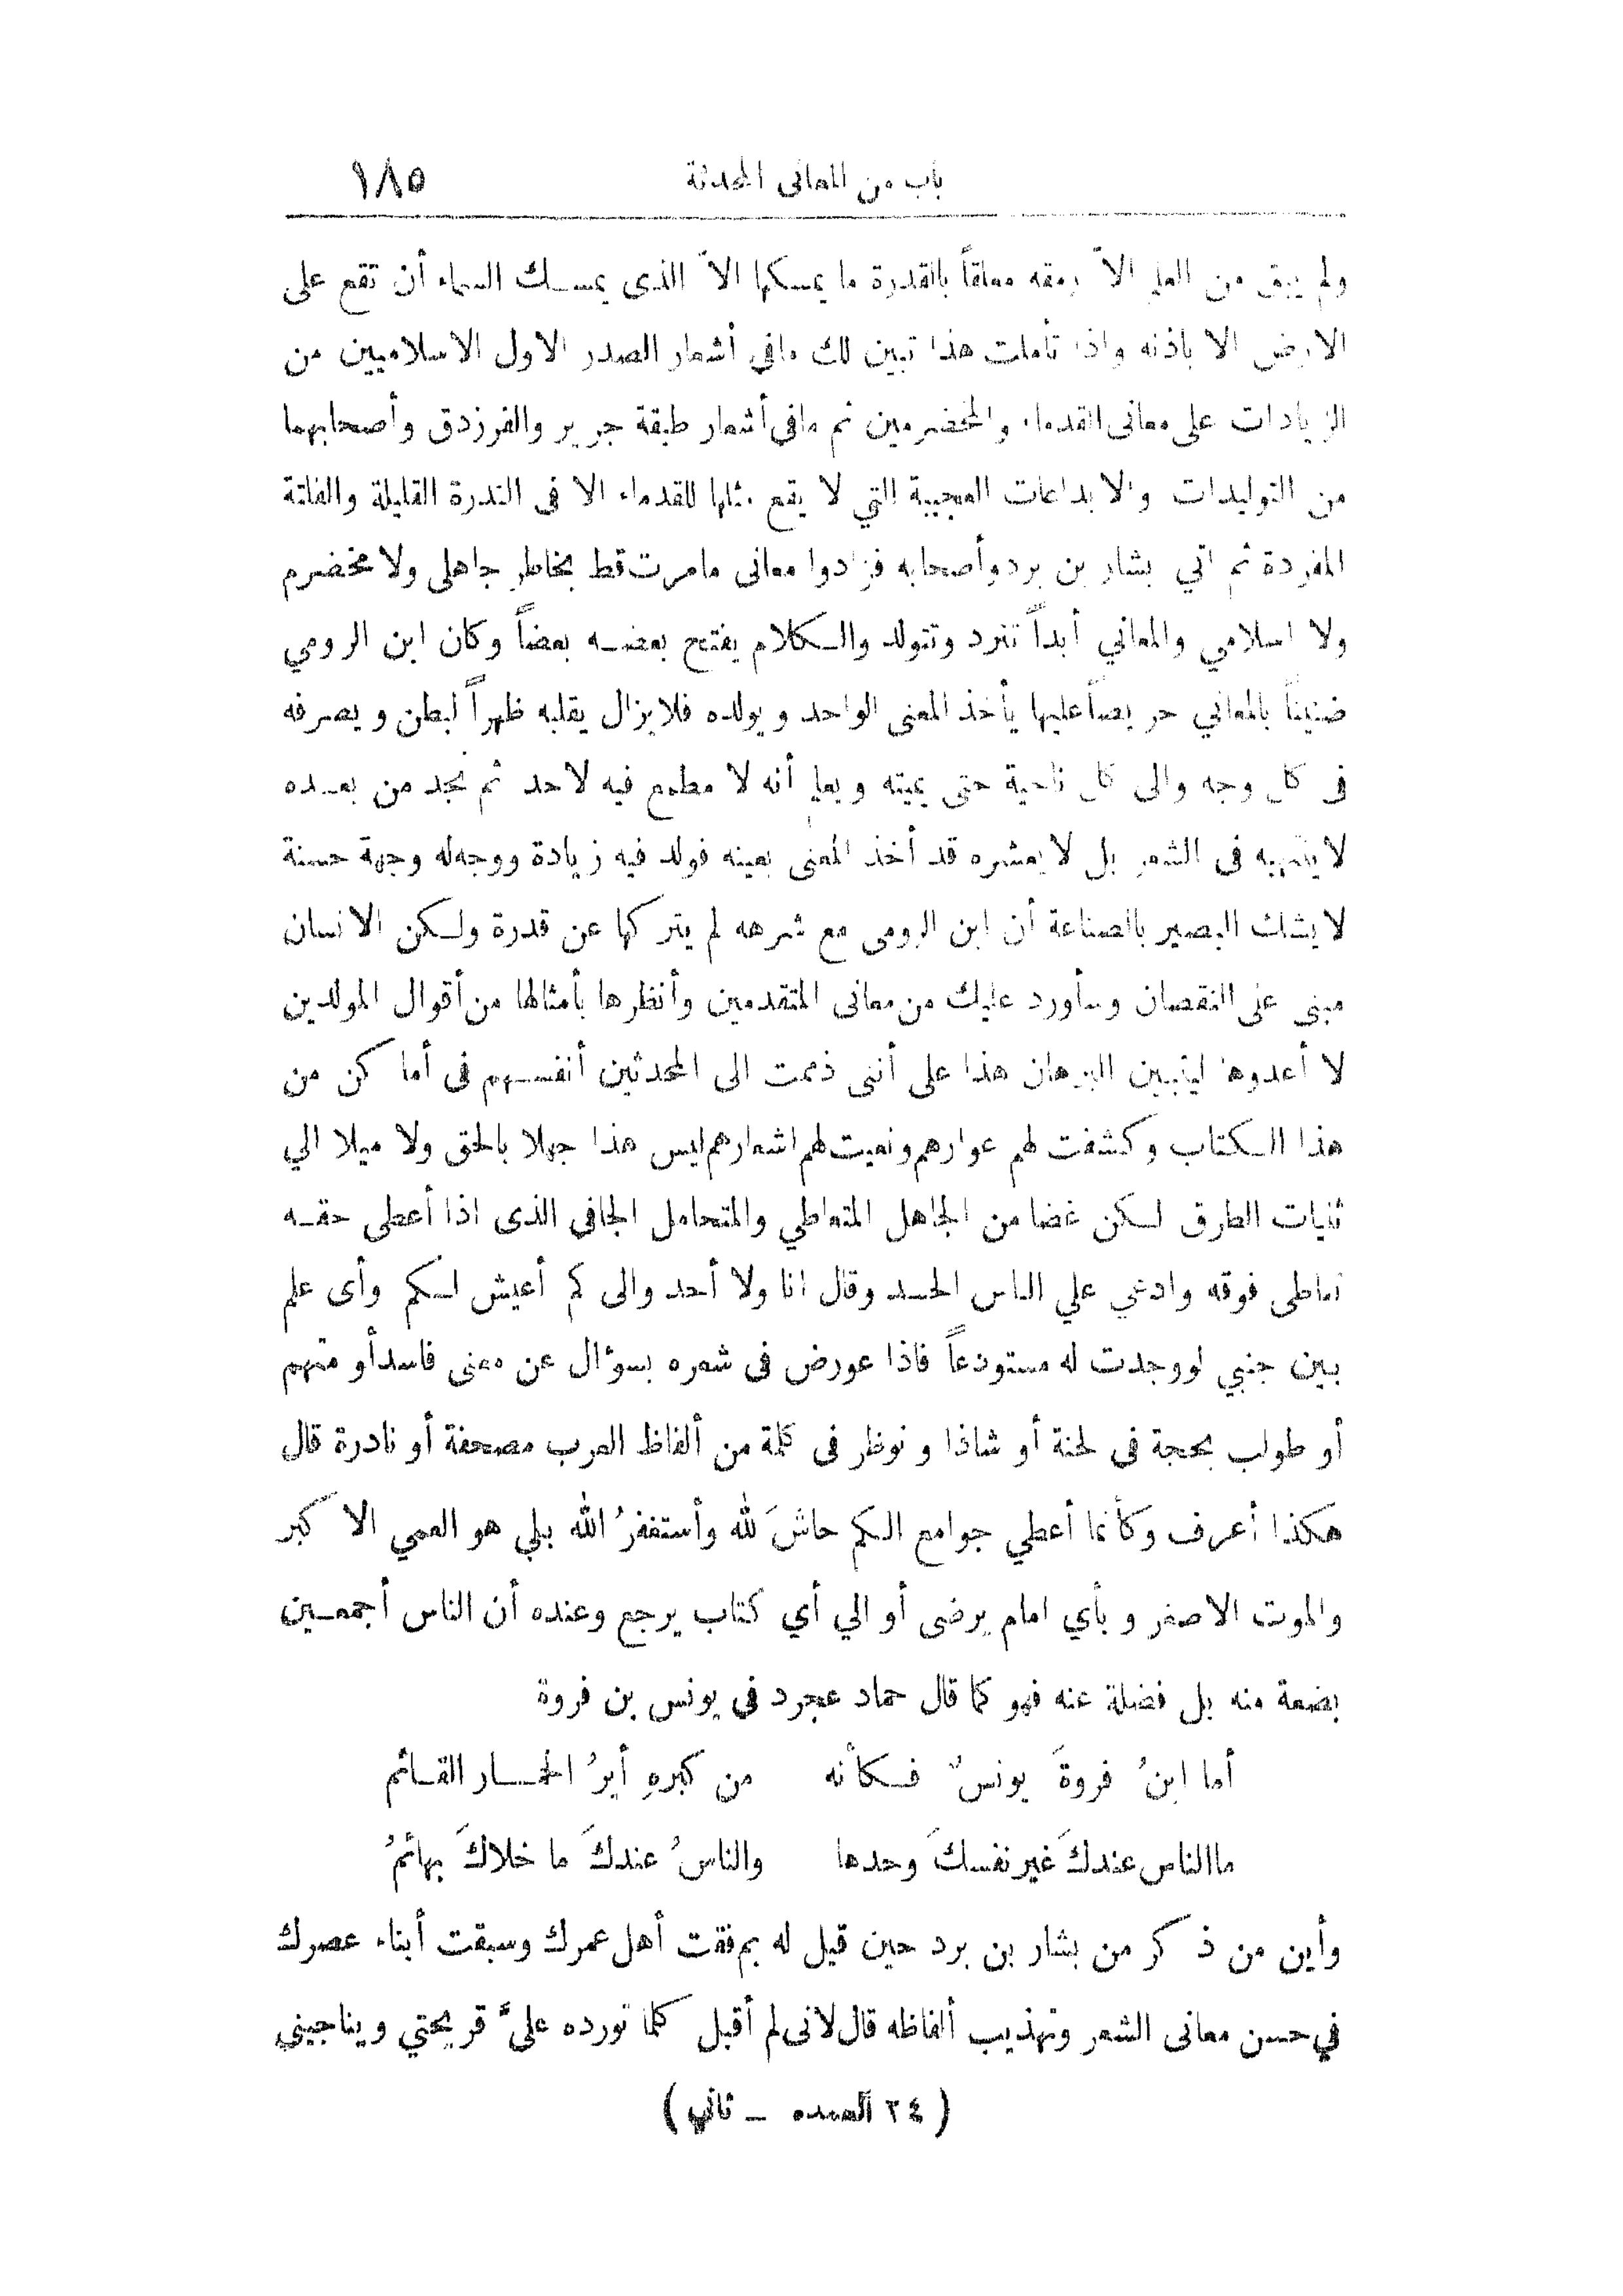 باب من المعانى المحدثة ١٨٥
ولم يبق من العلم الاّ رمقه معلقاً بالقدرة ما يمسكها الاّ الذى يمسك السماء أن تقع على
الارض الا باذنه واذا تأملت هذا تبين لك مافي أشعار الصدر الاول الاسلاميين من
الزيادات على معانى القدماء والمخضرمين ثم مافي أشعار طبقة جرير والفرزدق وأصحابهما
من التوليدات والابداعات العجيبة التي لا يقع مثلها للقدماء الا فى الندرة القليلة والفلتة
المفردة ثم اتي بشار بن برد وأصحابه فزادوا معانى مامرت قط بخاطر جاهلى ولا مخضرم
ولا اسلامي والمعاني أبداً تتردد وتتولد والكلام يفتح بعضه بعضاً وكان ابن الرومي
ضنيناً بالمعاني حريصاً عليها يأخذ المعنى الواحد ويولده فلا يزال يقلبه ظهراً لبطن ويصرفه
فى كل وجه والى كل ناحية حتى يميته ويعلم أنه لا مطمع فيه لاحد ثم نجد من بعده
لا ينتهيه فى الشعر بل لا يعشره قد أخذ المعنى بعينه فولد فيه زيادة ووجه له وجهة حسنة
لا يشك البصير بالصناعة أن ابن الرومى مع شرهه لم يتركها عن قدرة ولكن الانسان
مبنى على النقصان وسأورد عليك من معانى المتقدمين وأنظرها بأمثالها من أقوال المولدين
لا أعدوها ليتبين البرهان هذا على أننى ذممت الى المحدثين أنفسهم فى أماكن من
هذا الكتاب وكشفت لهم عوارهم ونعيت لهم اشعارهم ليس هذا جهلا بالحق ولا ميلا الي
ثنيات الطرق لكن غضا من الجاهل المتعاطي والمتحامل الجافي الذى اذا أعطى حقه
تعاطى فوقه وادعي علي الناس الحسد وقال انا ولا أحد والى كم أعيش لكم وأى علم
بين جنبي لو وجدت له مستودعاً فاذا عورض فى شعره بسؤال عن معنى فاسد أو متهم
أو طولب بحجة فى لحنة أو شاذ او نوظر فى كلمة من ألفاظ العرب مصحفة أو نادرة قال
هكذا أعرف وكأنما أعطي جوامع الكلم حاشَ لله وأستغفرُ الله بلي هو العمي الاكبر
والموت الاصغر وبأي امام يرضى أو الي أي كتاب يرجع وعنده أن الناس أجمعين
بضعة منه بل فضلة عنه فهو كما قال حماد عجرد في يونس بن فروة
أما ابنُ فروةَ يونسٌ فكأنه من كبرهِ أيرُ الحمار القائم
ما الناس عندكَ غير نفسكَ وحدها والناسُ عندكَ ما خلاكَ بهائمُ
وأين من ذكر من بشار بن برد حين قيل له بم فقت أهل عمرك وسبقت أبناء عصرك
في حسن معانى الشعر وتهذيب ألفاظه قال لانى لم أقبل كلما تورده علىَّ قريحتي ويناجيني
( ٢٤ العمده – ثاني )